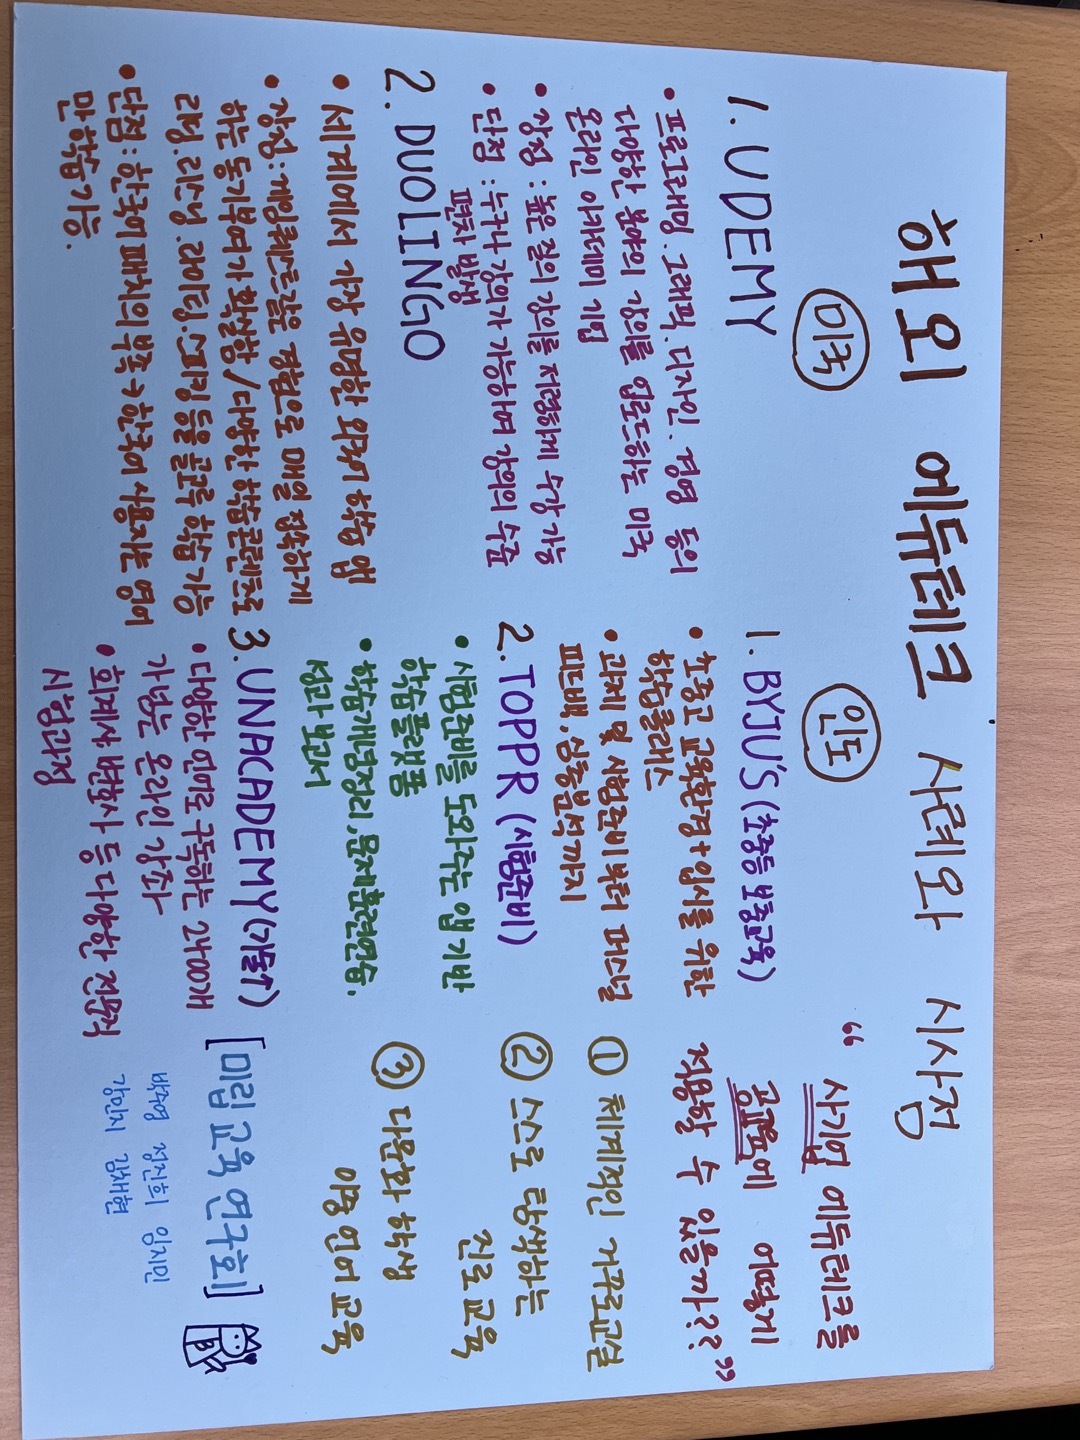 해외 에듀테크 사례와 시사점
미국
1. UDEMY
• 프로그래밍. 그래픽. 디자인. 경영 등의
다양한 분야의 강의를 업로드하는 미국
온라인 아카데미 기업
• 장점 : 높은 질의 강의를 저렴하게 수강 가능
• 단점 : 누구나 강의가 가능하여 강의의 수준
편차 발생
2. DUOLINGO
• 세계에서 가장 유명한 외국어 학습 앱
• 장점 : 게임퀘스트같은 방법으로 매일 접속하게
하는 동기부여가 확실함 / 다양한 학습콘텐츠로
리딩. 리스닝. 라이팅. 스피킹 등을 골고루 학습 가능
• 단점 : 한국어 패치의 부족 → 한국어 사용자는 영어
만 학습 가능.
인도
1. BYJU'S (초중등 보충교육)
• 초중고 교육환경 + 입시를 위한
학습클래스
• 과제 및 시험준비부터 퍼스널
피드백, 심층분석까지
2. TOPPR (시험준비)
• 시험준비를 도와주는 앱 기반
학습플랫폼
• 학습개념정리, 문제훈련연습.
성과 보고서
3. UNACADEMY(개발)
• 다양한 언어로 구독하는 2400개
가넘는 온라인 강좌
• 회계사 변호사 등 다양한 전문직
시험과정
“ 사기업 에듀테크를
공교육에 어떻게
적용할 수 있을까?? ”
① 체계적인 거꾸로교실
② 스스로 탐색하는
진로 교육
③ 다문화 학생
이중 언어 교육
[미림 교육 연구회]
박주영 정진희 임지민
강민지 김채현